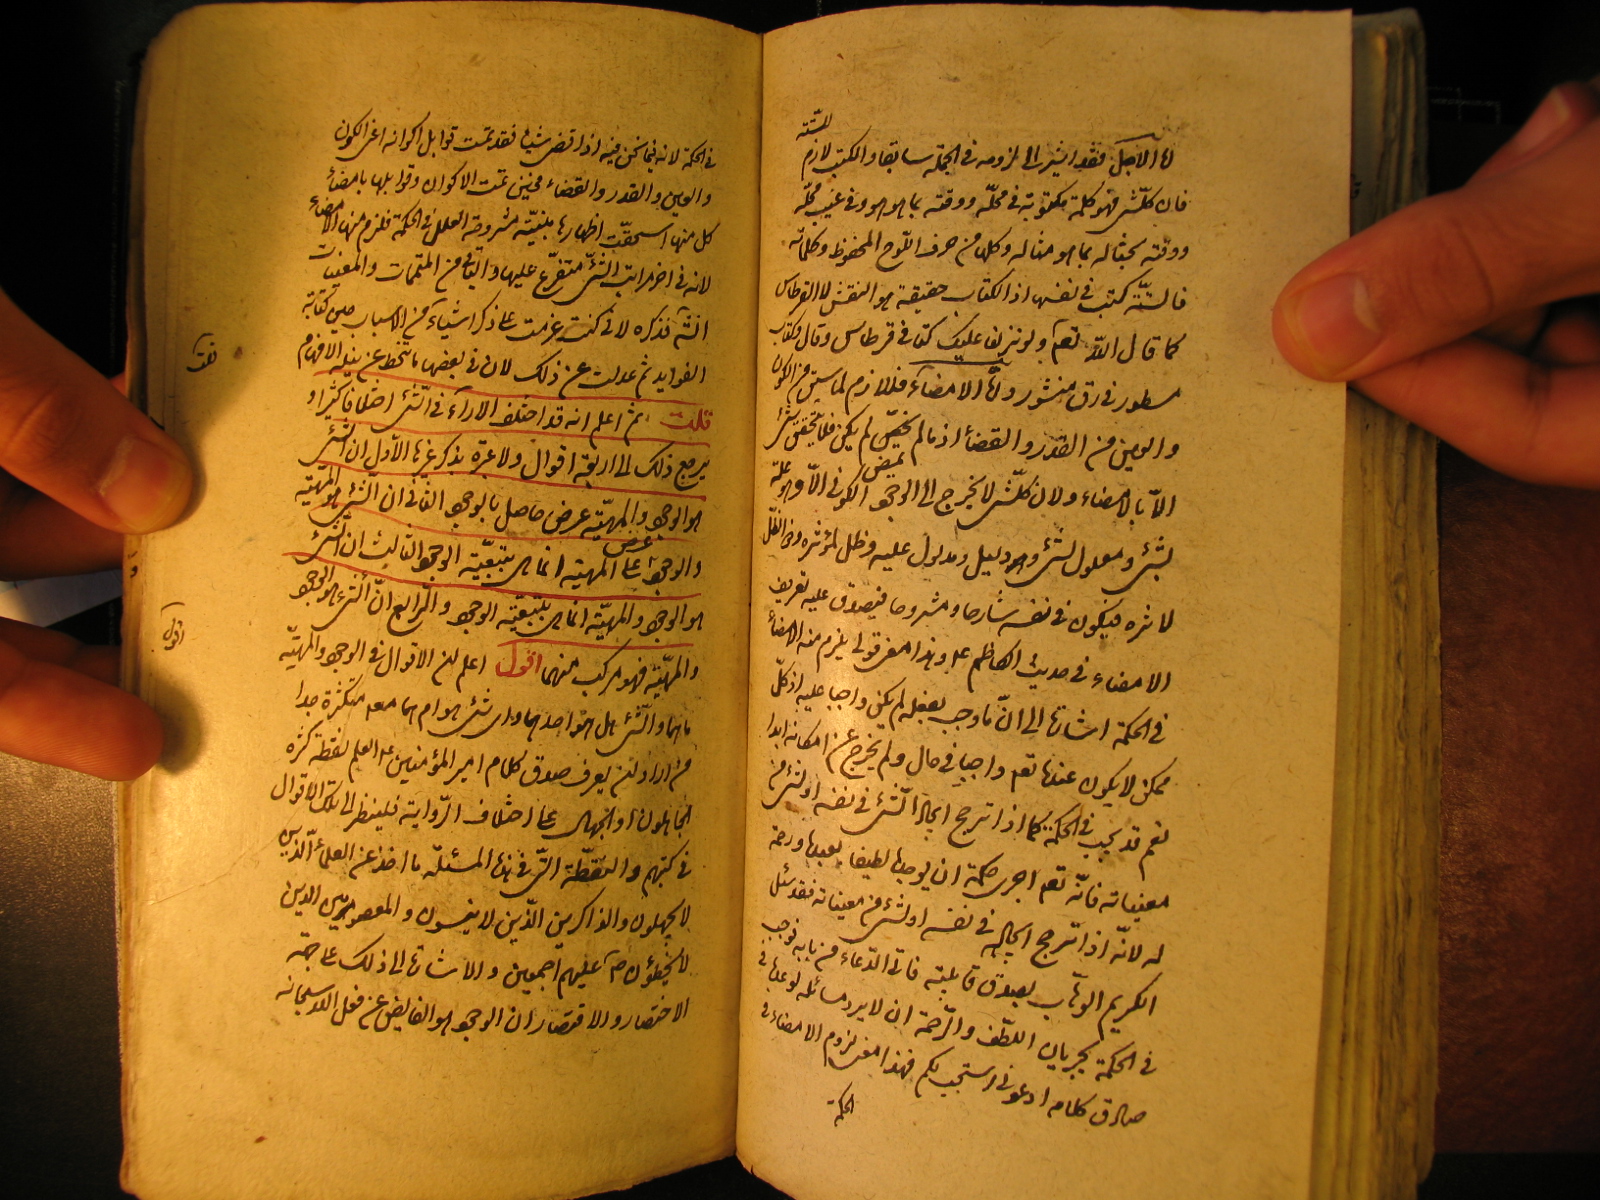 للستة
لها الاجل فقد اشير الى لزومه في الجملة سابقا والكتب لازم
فان كل شئ فهو كلمة مكتوبة في محله ووقته بما هو هو وفي غيب محله
ووقته بمثاله بما هو مثاله وكلها من حروف اللوح المحفوظ وكلماته
فالستة كتب في نفسها اذ الكتاب حقيقة هو النقش لا القرطاس
كما قال الله تعم ولو نزلنا عليك كتابا في قرطاس وقال وكتاب
مسطور في رق منشور واما الامضاء فللازم لما سبق من الكون
والعين من القدر والقضاء اذ ما لم يمض لم يكن فلا يتحقق شئ
الا بالامضاء ولان كل شئ لا يخرج الى الوجود الكوني الا وهو علة
لشئ ومعلول لشئ وهو دليل ومدلول عليه وظل لمؤثره وذي الظل
لاثره فيكون في نفسه شارحا ومشروحا فيصدق عليه تعريف
الامضاء في حديث الكاظم ع وهذا معنى قولي يلزم منه الامضاء
في الحكمة اشارة الى ان ما وجب بفعله لم يكن واجبا عليه اذ كل
ممكن لا يكون عندنا تعم واجبا في حال ولم يخرج عن امكانه ابدا
نعم قد يجب في الحكمة كما اذا ترجح ايجاد الشئ في نفسه او لشئ من
معيناته فانه تعم اجرى حكمة ان يوجدها لطيفا بعبده ورحمة
له لانه اذا ترجح ايجاده في نفسه او لشئ من معيناته فقد سئل
الكريم الوهاب بصدق قابليته فاتى الدعاء من بابه فوجب
في الحكمة بجريان اللطف والرحمة ان لا يرد سائله لوعده في
صادق كلامه ادعوني استجب لكم فهذا معنى لزوم الامضاء في
الحكمة
في الحكمة لانه فيما نحن فيه اذا قضى شيئا فقد تمت قوابل اكوانه اعني الكون
والعين والقدر والقضاء فحين تمت الاكوان وقوابلها بامضاء
كل منها استحقت اظهارها مبنية مشروحة العلل في الحكمة فلزم منها الامضاء
لانه في اخر مراتب الشئ متفرع عليها والباقي من المتممات والمعينات
الستة نذكره لاني كنت عزمت على ذكر اشياء من الاسباب حين كتابة
الفوايد ثم عدلت عن ذلك لان في بعضها ما تنحط عن نيله الافهام
قلت ثم اعلم انه قد اختلف الاراء في الشئ اختلافا كثيرا و
قلت
يرجع ذلك الى اربعة اقوال ولا عبرة بذكر غيرها الاول ان الشئ
هو الوجود والمهية عرض حاصل بالوجود الثاني ان الشئ هو المهية
والوجود عرض على المهية انما هي بتبعية الوجود الثالث ان الشئ
هو الوجود والمهية انما هي بتبعية الوجود والرابع ان الشئ هو الوجود
والمهية فهو مركب منهما اقول اعلم ان الاقوال في الوجود والمهية
اقول
ما هما والشئ هل هو احدهما واي شئ هو ام هما معه متكثرة جدا
من اراد ان يعرف صدق كلام امير المؤمنين ع العلم نقطة كثره
الجاهلون او الجهال على اختلاف الرواية فلينظر الى تلك الاقوال
في كتبهم والنقطة التي في هذا المسئلة ما اخذ عن العلماء الذين
لا يجهلون والذاكرين الذين لا ينسون والمعصومين الذين
لا يخطؤن ص عليهم اجمعين والاشارة الى ذلك على جهة
الاختصار والاقتصار ان الوجود هو الفايض عن فعل الله سبحانه